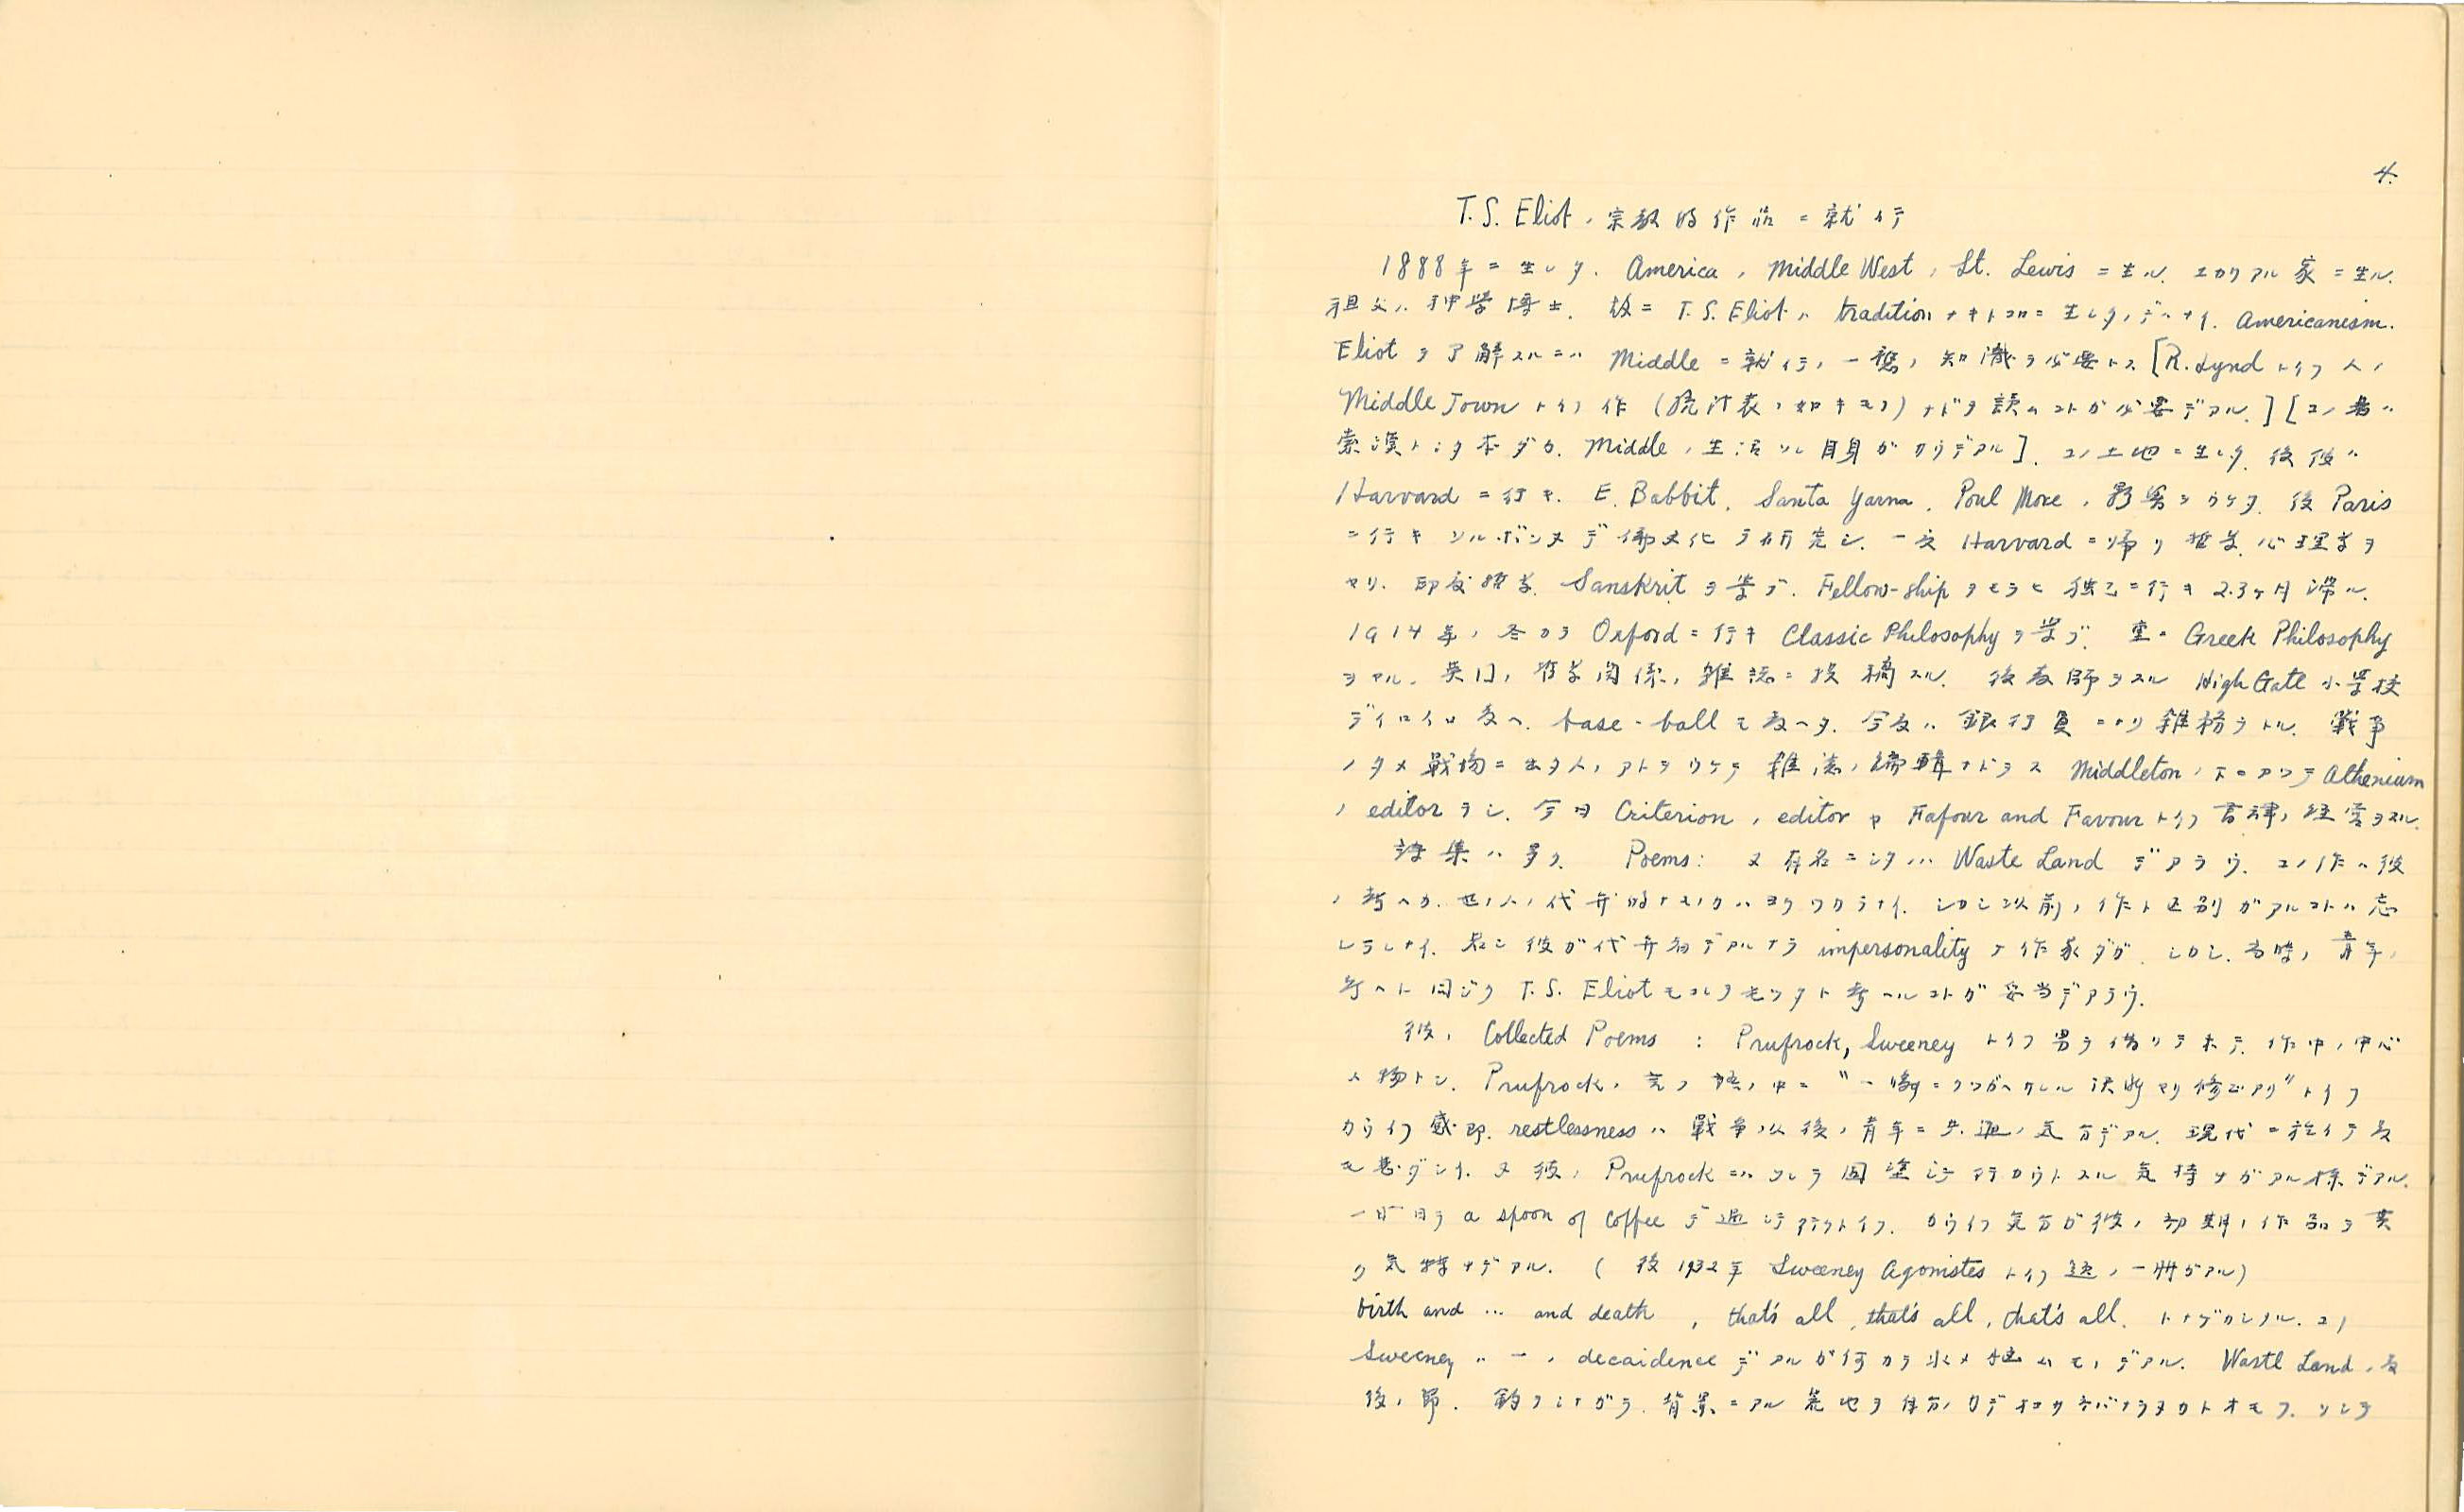 4.
T.S. Eliot ノ 宗教的作品ニ就イテ
1888年ニ生レタ. America ノ Middle West ノ St. Lewis ニ生ル. ヱカリアル家ニ生ル.
祖父ハ神学博士. 故ニ T.S. Eliot ハ tradition ナキトコロニ生レタノデハナイ. Americanism.
Eliot ヲ了解スルニハ Middle ニ就イテノ一應ノ知識ヲ必要トス [R. Lynd トイフ人ノ
Middle Town トイフ作 (統計表ノ如キモノ) ナドヲ読ムコトガ必要デアル.] [コノ書ハ
索漠トシタ本ダカ. Middle ノ生活ソレ自身ガカウデアル]. コノ土地ニ生レタ. 後彼ハ
Harvard ニ行キ. E. Babbit. Santa Yarna. Poul More ノ影響ヲウケタ. 後 Paris
ニ行キソルボンヌデ佛文化ヲ研究シ. 一度 Harvard ニ帰リ哲学, 心理学ヲ
ヤリ. 印度語学. Sanskrit ヲ学ブ. Fellow-ship ヲモラヒ独乙ニ行キ 2.3ヶ月滞ル.
1914年ノ冬カラ Oxford ニ行キ Classic Philosophy ヲ学ブ. 重ニ Greek Philosophy
ヲヤル. 英国ノ哲学関係ノ雑誌ニ投稿スル. 後教師ヲスル High Gate 小学校
デイロイロ教ヘ. base-ball モ教ヘタ. 今度ハ銀行員ニナリ雑務ヲトル. 戦争
ノタメ戦場ニ出タ人ノアトヲウケテ雑誌ノ編輯ナドヲス Middleton ノ下ニアツテ Athenium
ノ editor ヲシ. 今日 Criterion ノ editor ヤ Fafour and Favour トイフ書肆ノ経営ヲスル.
詩集ハ多ク. Poems: 又有名ニシタノハ Waste Land デアラウ. コノ作ハ彼
ノ考ヘカ. 世ノ人ノ代弁的ナモノカハヨクワカラナイ. シカシ以前ノ作ト区別ガアルコトハ忘
レラレナイ. 若シ彼ガ代弁者デアルナラ impersonality ナ作家ダガ. シカシ. 当時ノ青年ノ
考ヘト同ジク T.S. Eliot モコレヲモツタト考ヘルコトガ妥当デアラウ.
彼ノ Collected Poems : Prufrock, Sweeney トイフ男ヲ借リテ来テ. 作中ノ中心
人物トシ. Prufrock ノ
カウイフ感即. restlessness ハ戦争以後ノ青年ニ共通ノ気分デアル. 現代ニ於イテ
又彼ノ Prufrock ニハソレヲ
a spoon of coffee デ過シテ カウイフ気分ガ彼ノ初期ノ作品ヲ貫
ク気持チデアル. (後1932年 Sweeney Agonistes トイフ題ノ一冊ガアル)
birth and ... and death , that's all, that's all, that's all. トナゲカレタル. コノ
Sweeney ハ一ノ decaidence デアルガ何カヲ求メ デアル. Wastl Land ノ最
後ノ節. 釣ヲシナガラ. 背景ニアル荒地ヲ トオモフ. ソレヲ